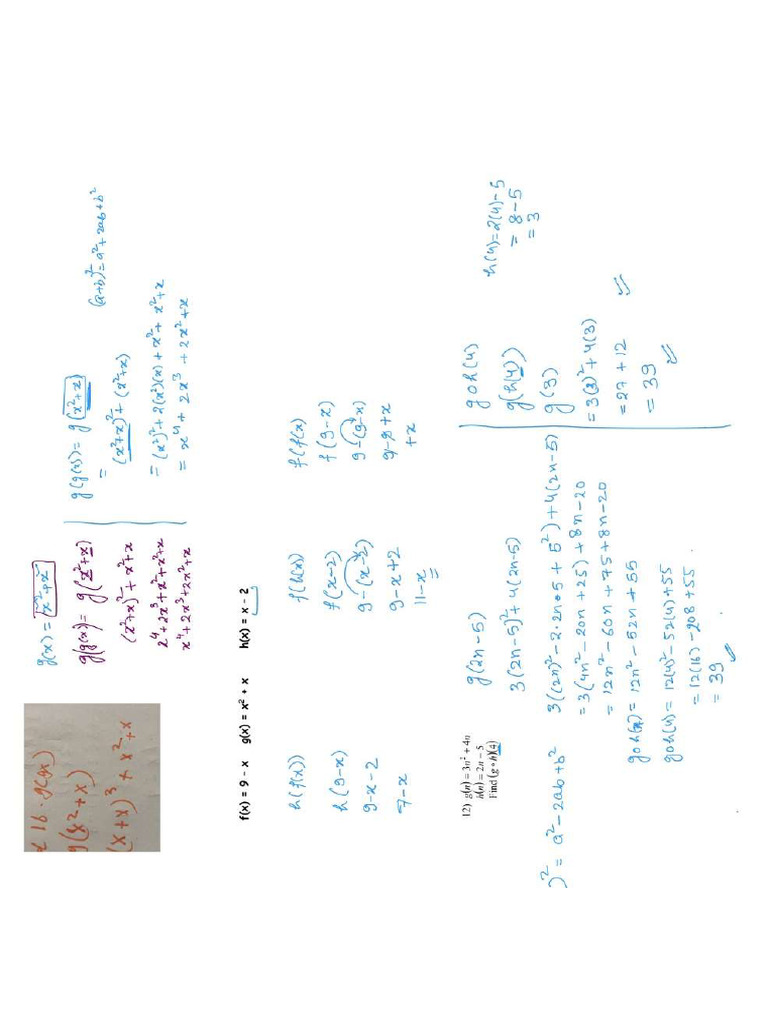 16. g(gx)
g(x²+x)
(x+x)³ + x²+x
g(x) = x²+x
g(g(x)) = g(x²+x)
(x²+x)² + x²+x
x⁴+2x³+x²+x²+x
x⁴+2x³+2x²+x
g(g(x)) = g(x²+x)
= (x²+x)² + (x²+x)
(a+b)² = a²+2ab+b²
= (x²)²+2(x²)(x)+x²+x²+x
= x⁴ + 2x³ + 2x²+x
f(x) = 9 - x g(x) = x² + x h(x) = x - 2
h(f(x))
h(9-x)
9-x-2
7-x
f(h(x))
f(x-2)
9-(x-2)
9-x+2
11-x
f(f(x)
f(9-x)
9-(9-x)
9-9+x
+x
12) g(n) = 3n² + 4n
h(n) = 2n - 5
Find (g ∘ h)(4)
)² = a²-2ab+b²
g(2n-5)
3(2n-5)²+4(2n-5)
3((2n)²-2·2n•5+5²)+4(2n-5)
= 3(4n²-20n+25)+8n-20
= 12n²-60n+75+8n-20
goh(n) = 12n²-52n+55
goh(4) = 12(4)²-52(4)+55
= 12(16)-208+55
= 39
goh(4)
g(h(4))
g(3)
= 3(3)²+4(3)
= 27+12
= 39
h(4)=2(4)-5
= 8-5
= 3